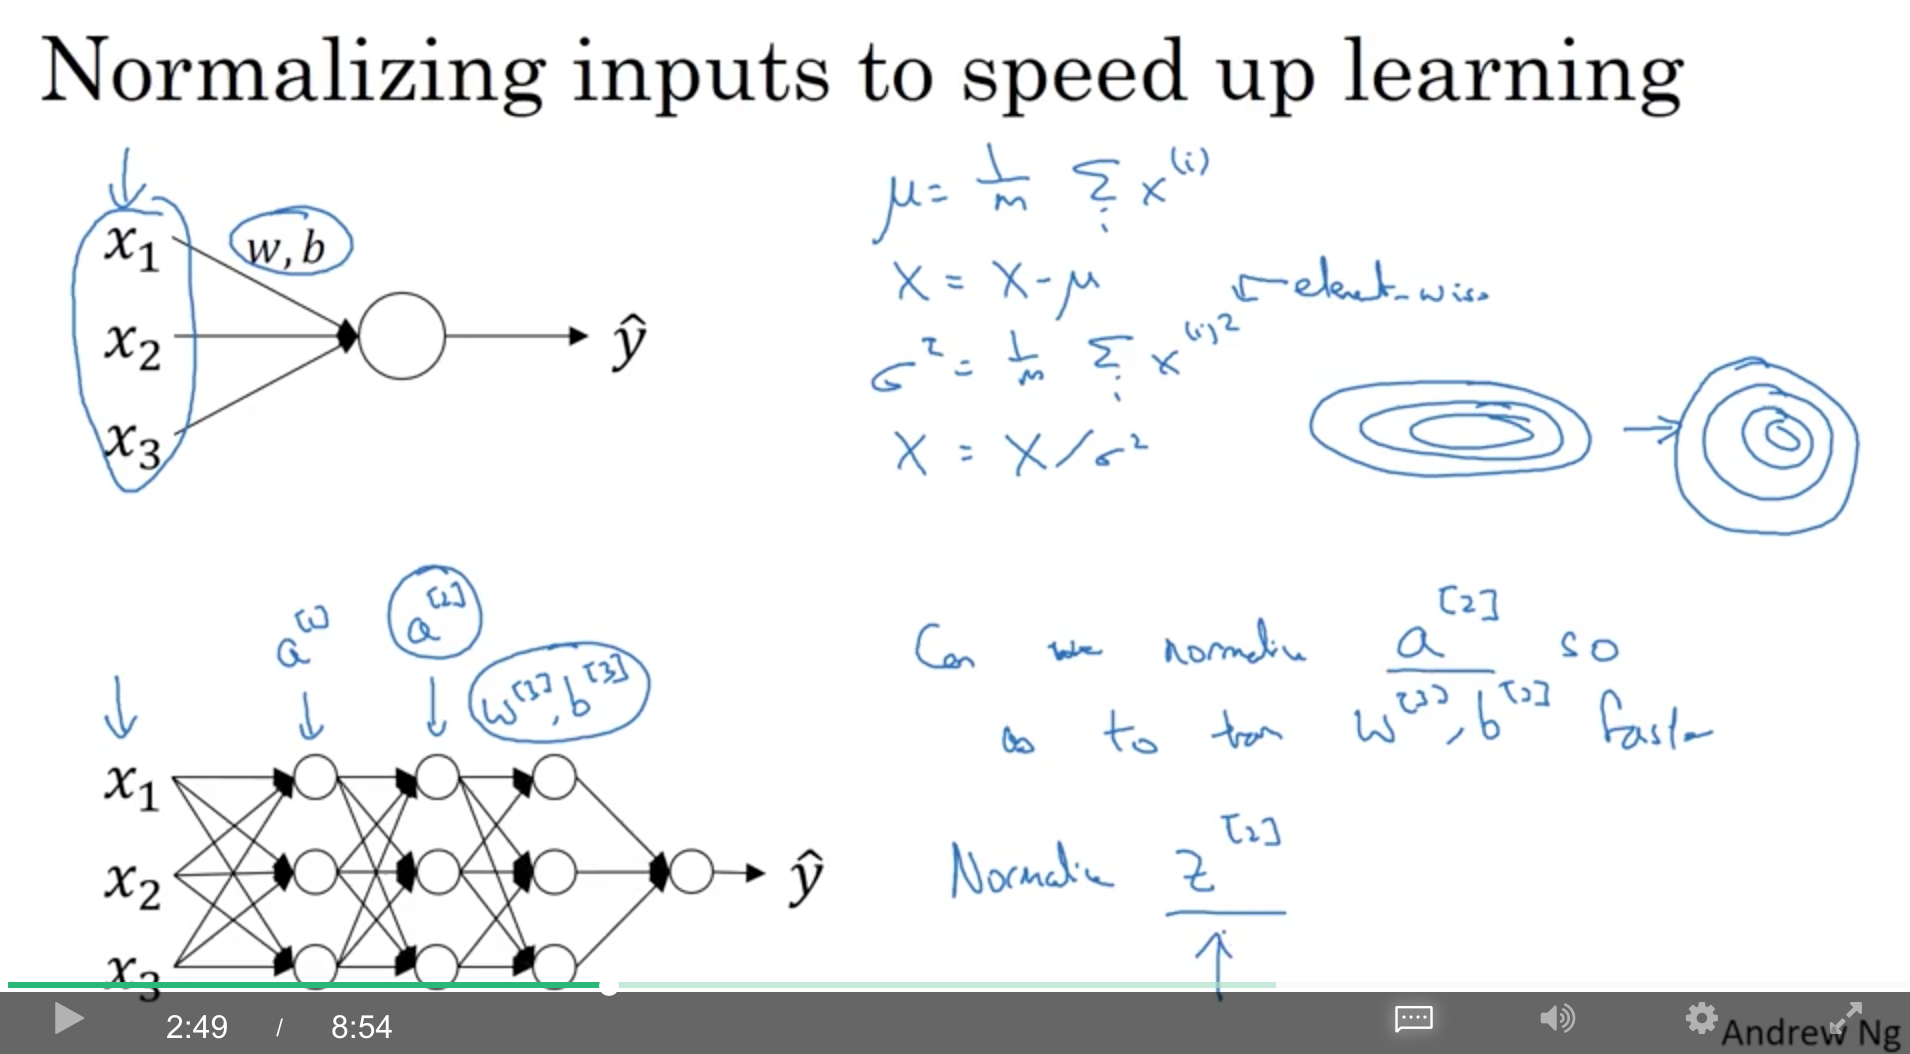 Normalizing inputs to speed up learning
x₁
w, b
x₂
ŷ
x₃
μ = 1/m Σᵢ x⁽ⁱ⁾
X = X - μ
← element-wise
σ² = 1/m Σᵢ x⁽ⁱ⁾²
X = X / σ²
→
a[1]
a[2]
w[3], b[3]
x₁
x₂
ŷ
x₃
Can we normalize a[2] so
as to train w[3], b[3] faster
Normalize z[2]
2:49 / 8:54
Andrew Ng